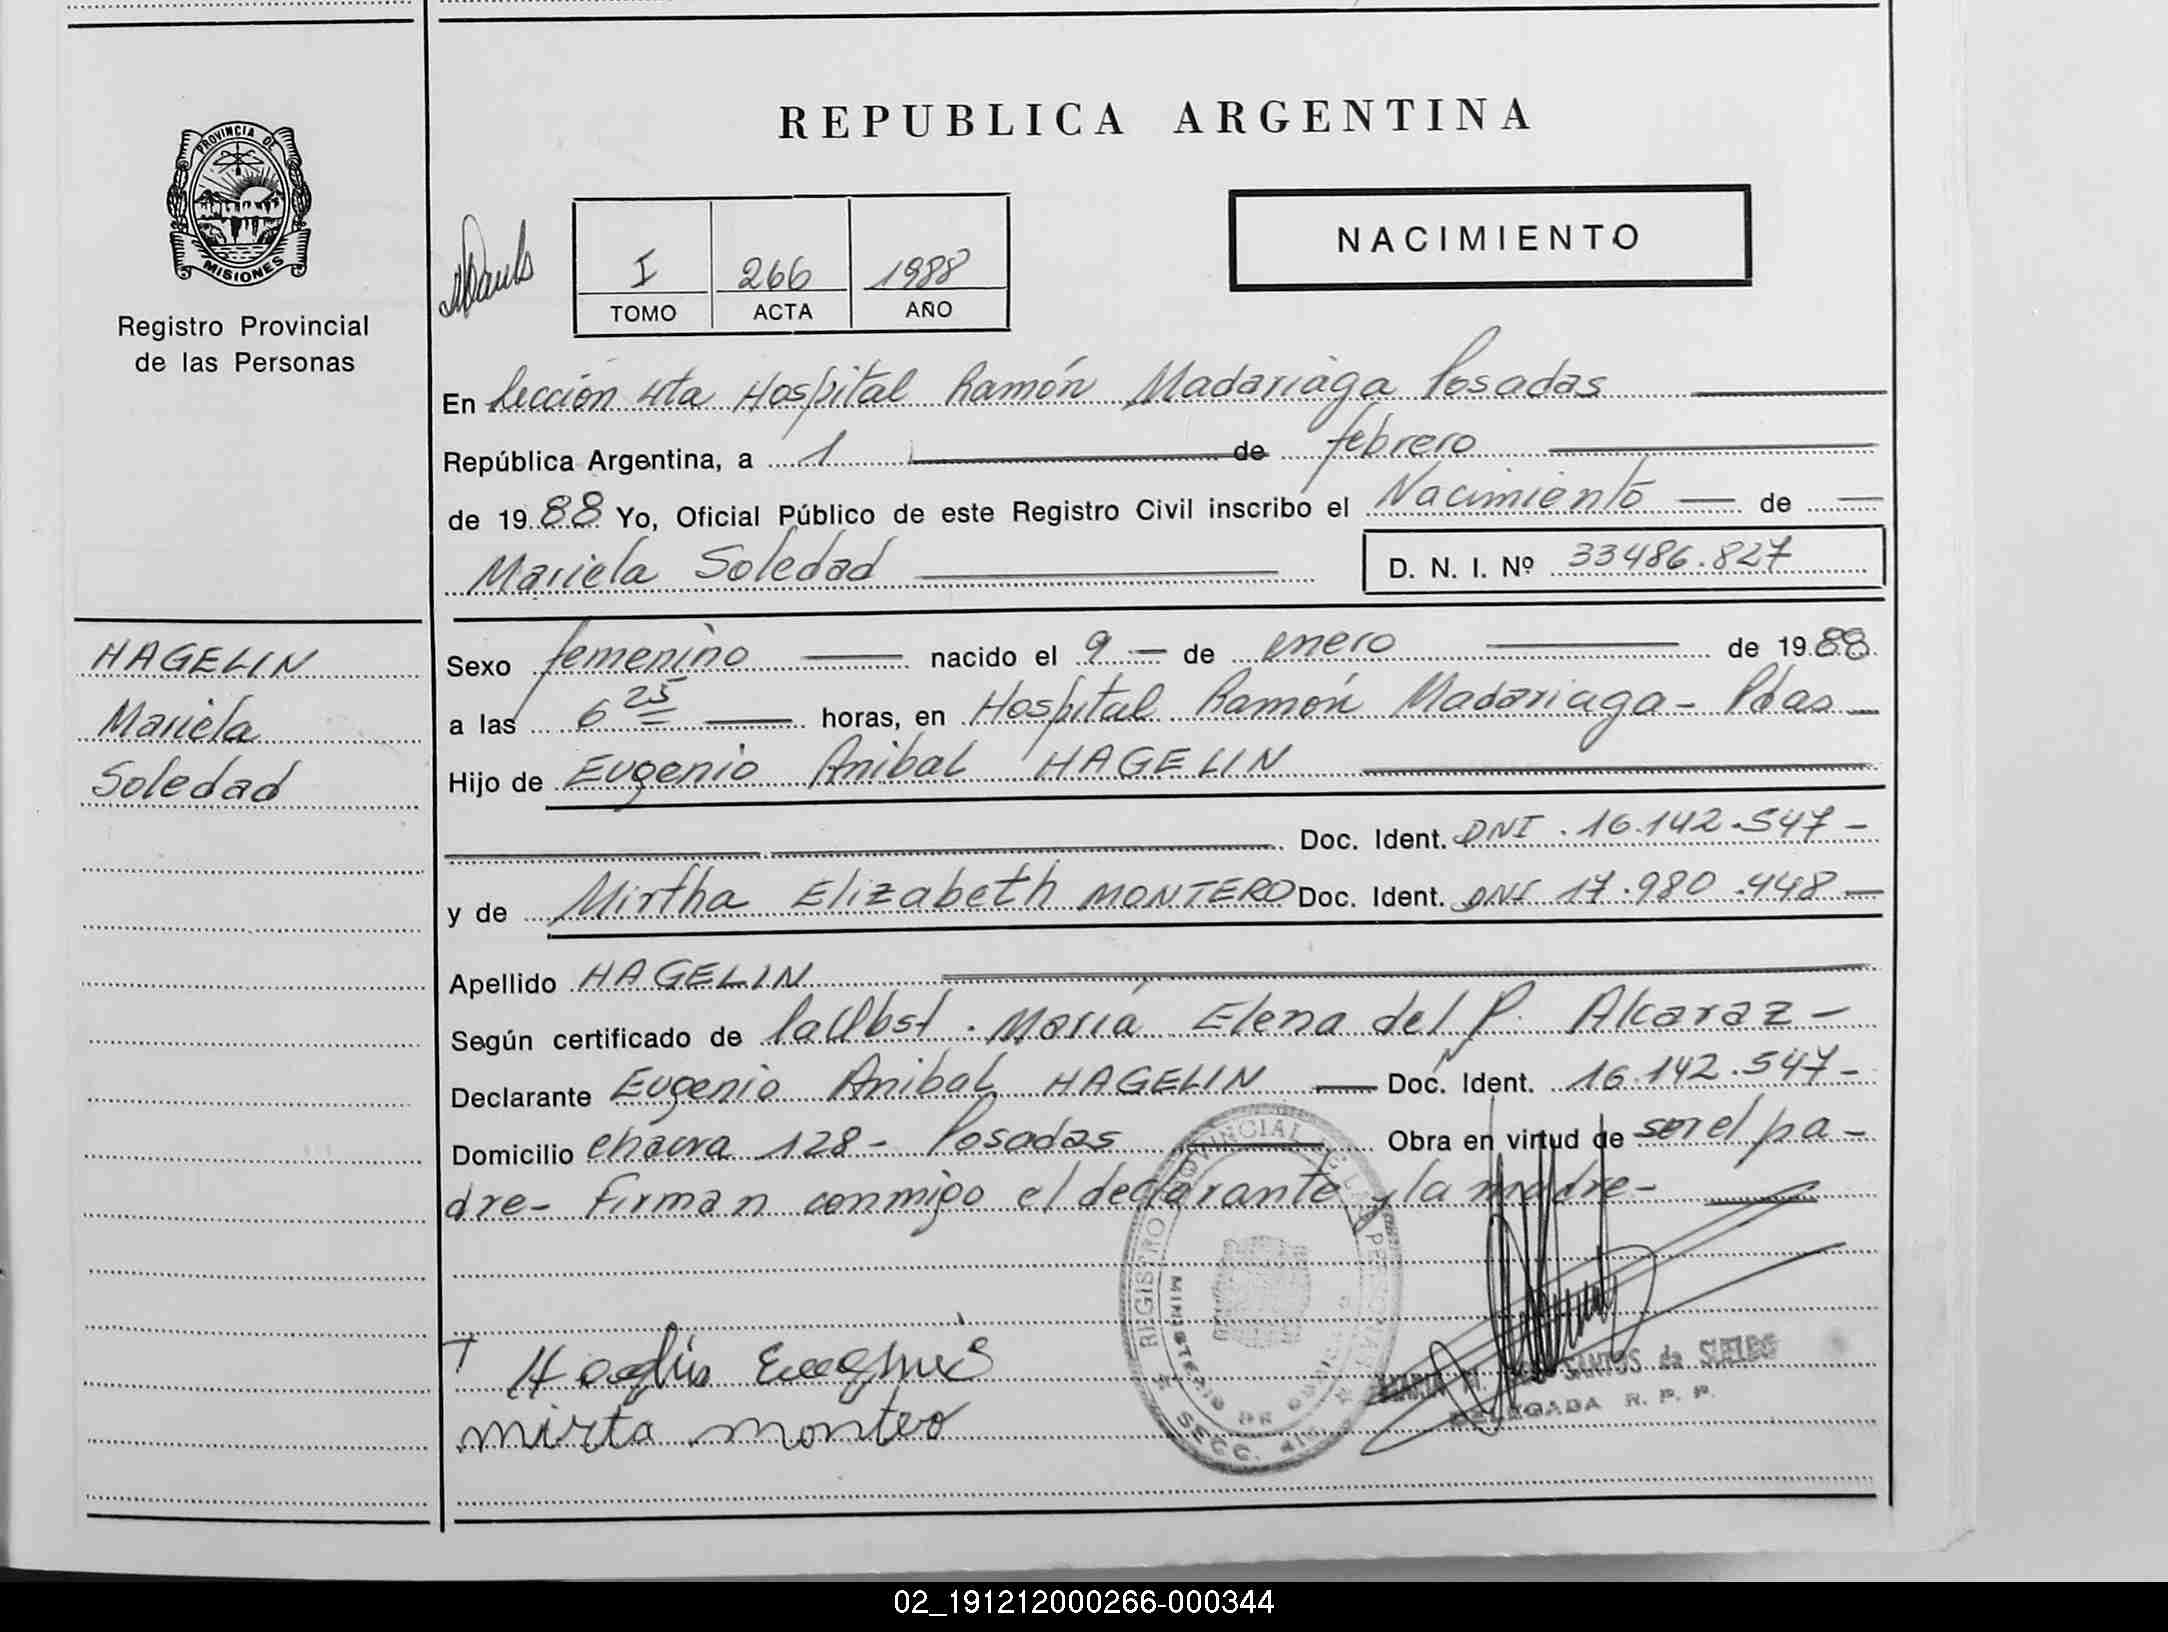 PROVINCIA DE
MISIONES
Registro Provincial
de las Personas
REPUBLICA ARGENTINA
I 266 1988
TOMO ACTA AÑO
NACIMIENTO
En Sección 4ta Hospital Ramón Madariaga Posadas
República Argentina, a 1 de febrero
de 1988 Yo, Oficial Público de este Registro Civil inscribo el Nacimiento de
Mariela Soledad D. N. I. Nº 33486.827
HAGELIN
Mariela
Soledad
Sexo femenino nacido el 9 de enero de 1988
a las 6 25 horas, en Hospital Ramón Madariaga - Pdas
Hijo de Eugenio Anibal HAGELIN
Doc. Ident. DNI . 16.142.547 -
y de Mirtha Elizabeth MONTERO Doc. Ident. DNI 17.980.448
Apellido HAGELIN
Según certificado de la Obst. María Elena del P. Alcaraz -
Declarante Eugenio Anibal HAGELIN Doc. Ident. 16.142.547 -
Domicilio chacra 128 - Posadas Obra en virtud de ser el pa-
dre - Firman conmigo el declarante y la madre -
REGISTRO PROVINCIAL DE LAS PERSONAS
MINISTERIO DE GOBIERNO
SECC. 4ta.
mirta montero
SANTOS de SUELDO
DELEGADA R. P. P.
02_191212000266-000344